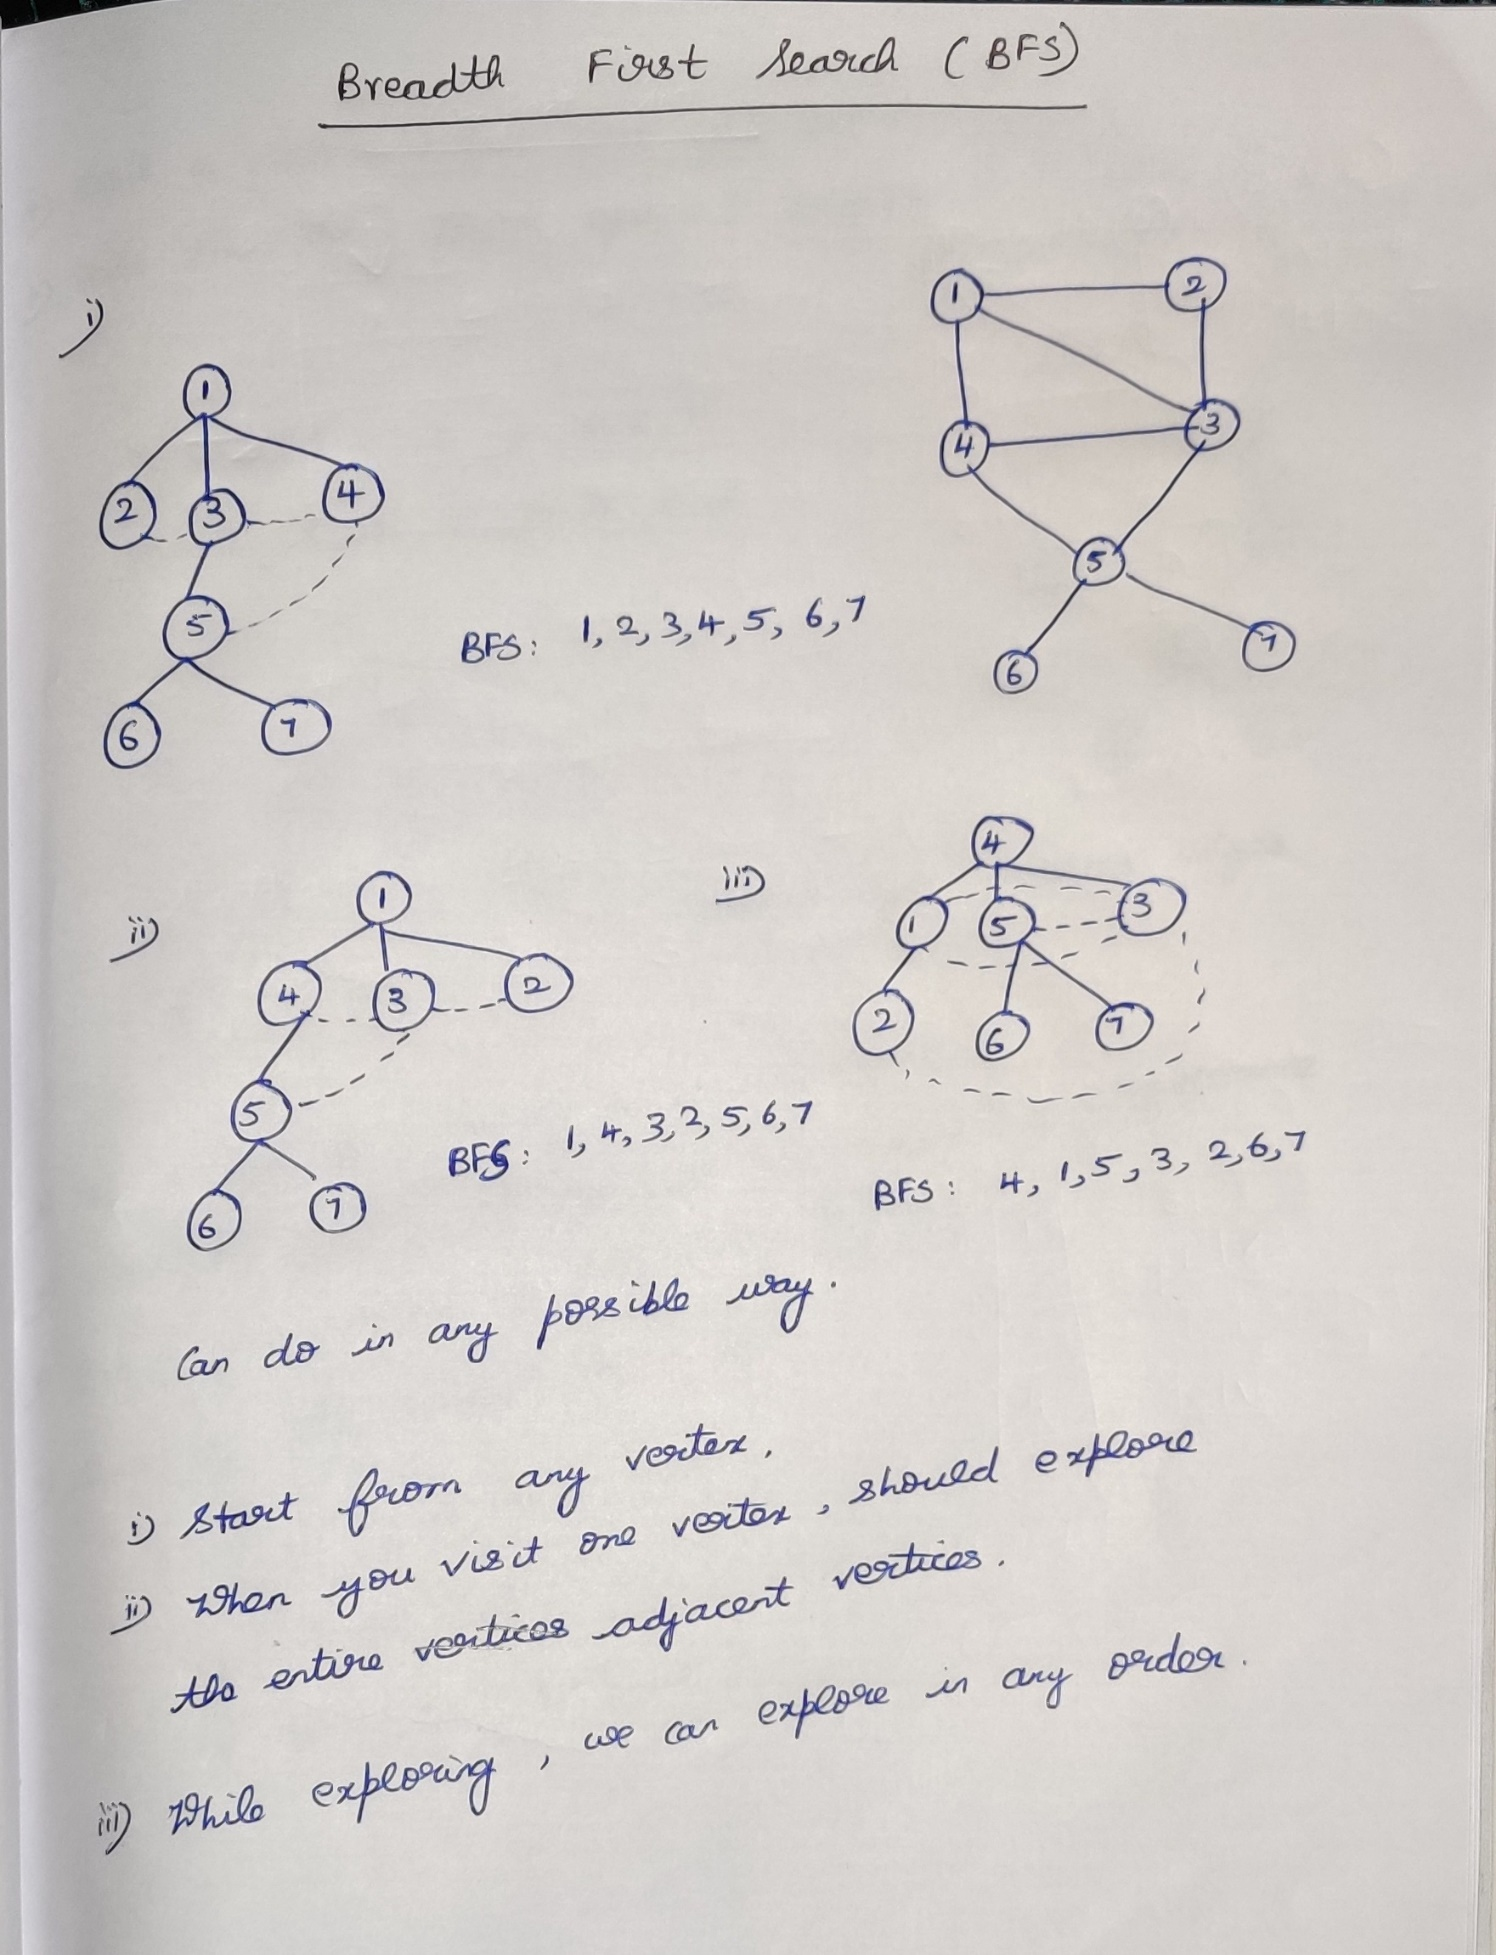 Breadth First Search (BFS)
i)
1 2
4 3
5
6 7
1
2 3 4
5
6 7
BFS: 1, 2, 3, 4, 5, 6, 7
ii)
1
4 3 2
5
6 7
BFS: 1, 4, 3, 2, 5, 6, 7
iii)
4
1 5 3
2 6 7
BFS: 4, 1, 5, 3, 2, 6, 7
Can do in any possible way.
i) Start from any vertex.
ii) When you visit one vertex, should explore
the entire vertices adjacent vertices.
iii) While exploring, we can explore in any order.